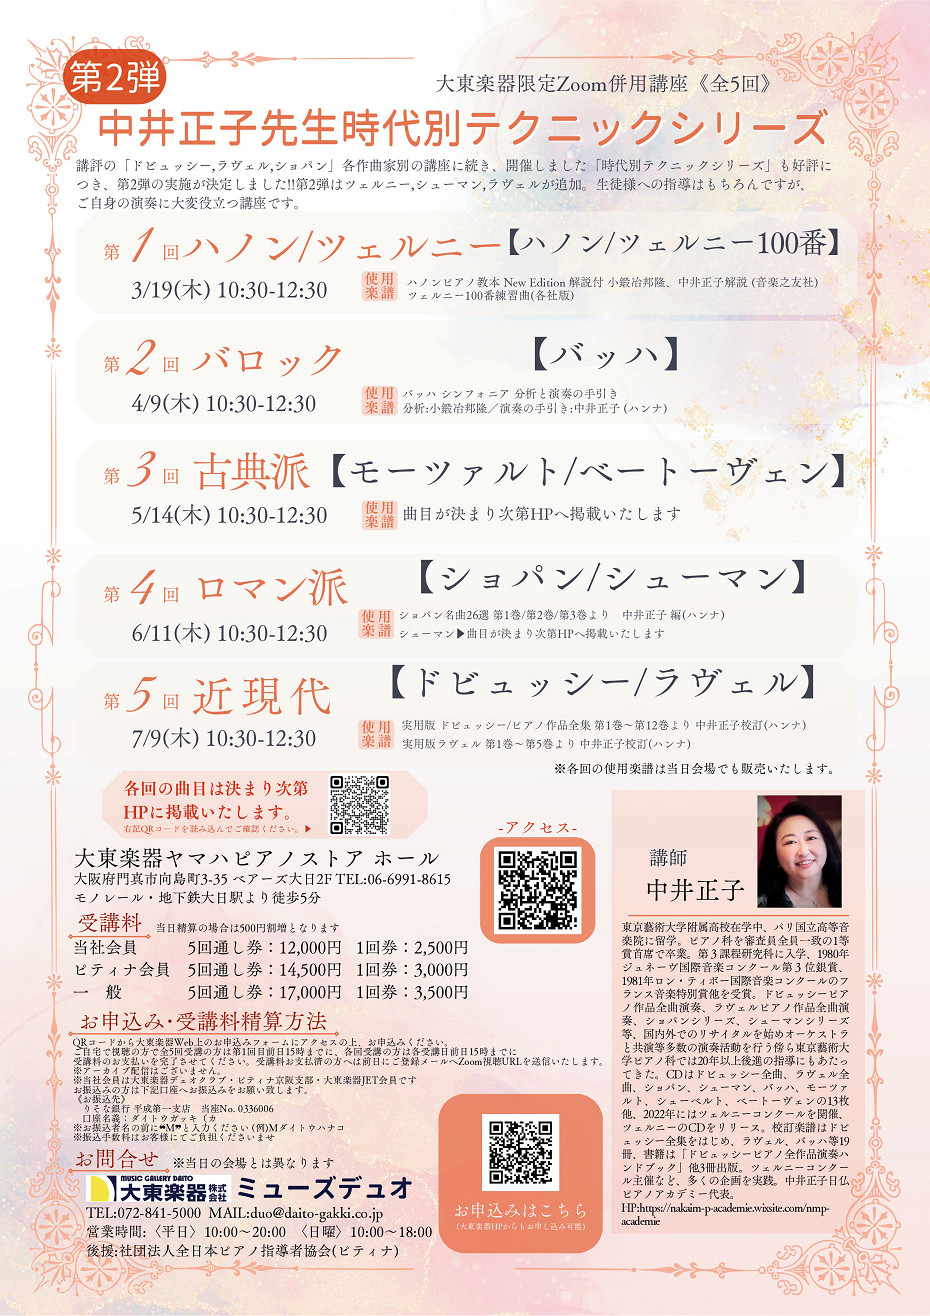 第2弾
大東楽器限定Zoom併用講座《全5回》
中井正子先生時代別テクニックシリーズ
講評の「ドビュッシー,ラヴェル,ショパン」各作曲家別の講座に続き、開催しました「時代別テクニックシリーズ」も好評に
つき、第2弾の実施が決定しました!!第2弾はツェルニー,シューマン,ラヴェルが追加。生徒様への指導はもちろんですが、
ご自身の演奏に大変役立つ講座です。
第1回ハノン/ツェルニー【ハノン/ツェルニー100番】
3/19(木) 10:30-12:30
使用楽譜 ハノンピアノ教本 New Edition 解説付 小鍛冶邦隆、中井正子解説 (音楽之友社)
ツェルニー100番練習曲(各社版)
第2回 バロック 【バッハ】
4/9(木) 10:30-12:30
使用楽譜 バッハ シンフォニア 分析と演奏の手引き
分析:小鍛冶邦隆／演奏の手引き:中井正子 (ハンナ)
第3回 古典派【モーツァルト/ベートーヴェン】
5/14(木) 10:30-12:30
使用楽譜 曲目が決まり次第HPへ掲載いたします
第4回 ロマン派 【ショパン/シューマン】
6/11(木) 10:30-12:30
使用楽譜 ショパン名曲26選 第1巻/第2巻/第3巻より 中井正子 編(ハンナ)
シューマン▶曲目が決まり次第HPへ掲載いたします
第5回 近現代 【ドビュッシー/ラヴェル】
7/9(木) 10:30-12:30
使用楽譜 実用版 ドビュッシー/ピアノ作品全集 第1巻～第12巻より 中井正子校訂(ハンナ)
実用版ラヴェル 第1巻～第5巻より 中井正子校訂(ハンナ)
※各回の使用楽譜は当日会場でも販売いたします。
各回の曲目は決まり次第
HPに掲載いたします。
右記QRコードを読み込んでご確認ください。▶
-アクセス-
大東楽器ヤマハピアノストア ホール
大阪府門真市向島町3-35 ベアーズ大日2F TEL:06-6991-8615
モノレール・地下鉄大日駅より徒歩5分
受講料 当日精算の場合は500円割増となります
当社会員 5回通し券：12,000円 1回券：2,500円
ピティナ会員 5回通し券：14,500円 1回券：3,000円
一 般 5回通し券：17,000円 1回券：3,500円
お申込み･受講料精算方法
QRコードから大東楽器Web上のお申込みフォームにアクセスの上、お申込みください。
ご自宅で視聴の方で全5回受講の方は第1回目前日15時までに、各回受講の方は各受講日前日15時までに
受講料のお支払いを完了させてください。受講料お支払済の方へは前日にご登録メールへZoom視聴URLを送信いたします。
※アーカイブ配信はございません。
※当社会員は大東楽器デュオクラブ・ピティナ京阪支部・大東楽器JET会員です
お振込みの方は下記口座へお振込みをお願い致します。
《お振込先》
りそな銀行 平成第一支店 当座No. 0336006
口座名義：ダイトウガッキ（カ
※お振込者名の前に❝M❞と入力ください (例)Mダイトウハナコ
※振込手数料はお客様にてご負担くださいませ
お問合せ ※当日の会場とは異なります
MUSIC GALLERY DAITO
大東楽器株式会社 ミューズデュオ
TEL:072-841-5000 MAIL:duo@daito-gakki.co.jp
営業時間:〈平日〉10:00～20:00 〈日曜〉10:00～18:00
後援:社団法人全日本ピアノ指導者協会(ピティナ)
お申込みはこちら
(大東楽器HPからもお申し込み可能)
講師
中井正子
東京藝術大学附属高校在学中、パリ国立高等音
楽院に留学。ピアノ科を審査員全員一致の1等
賞首席で卒業。第3課程研究科に入学、1980年
ジュネーヴ国際音楽コンクール第3位銀賞、
1981年ロン・ティボー国際音楽コンクールのフ
ランス音楽特別賞他を受賞。ドビュッシーピア
ノ作品全曲演奏、ラヴェルピアノ作品全曲演
奏、ショパンシリーズ、シューマンシリーズ
等、国内外でのリサイタルを始めオーケストラ
と共演等多数の演奏活動を行う傍ら東京藝術大
学ピアノ科では20年以上後進の指導にもあたっ
てきた。CDはドビュッシー全曲、ラヴェル全
曲、ショパン、シューマン、バッハ、モーツァ
ルト、シューベルト、ベートーヴェンの13枚
他、2022年にはツェルニーコンクールを開催、
ツェルニーのCDをリリース。校訂楽譜はドビ
ュッシー全集をはじめ、ラヴェル、バッハ等19
冊、書籍は「ドビュッシーピアノ全作品演奏ハ
ンドブック」他3冊出版。ツェルニーコンクー
ル主催など、多くの企画を実践。中井正子日仏
ピアノアカデミー代表。
HP:https://nakaim-p-academie.wixsite.com/nmp-
academie